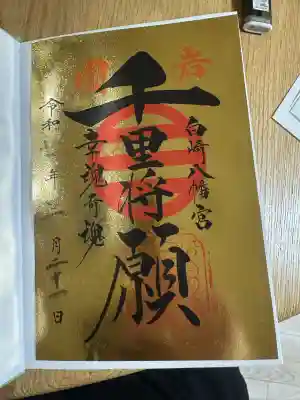 白崎八幡宮
千里将願
幸魂奇魂
令和 年 月二十一日